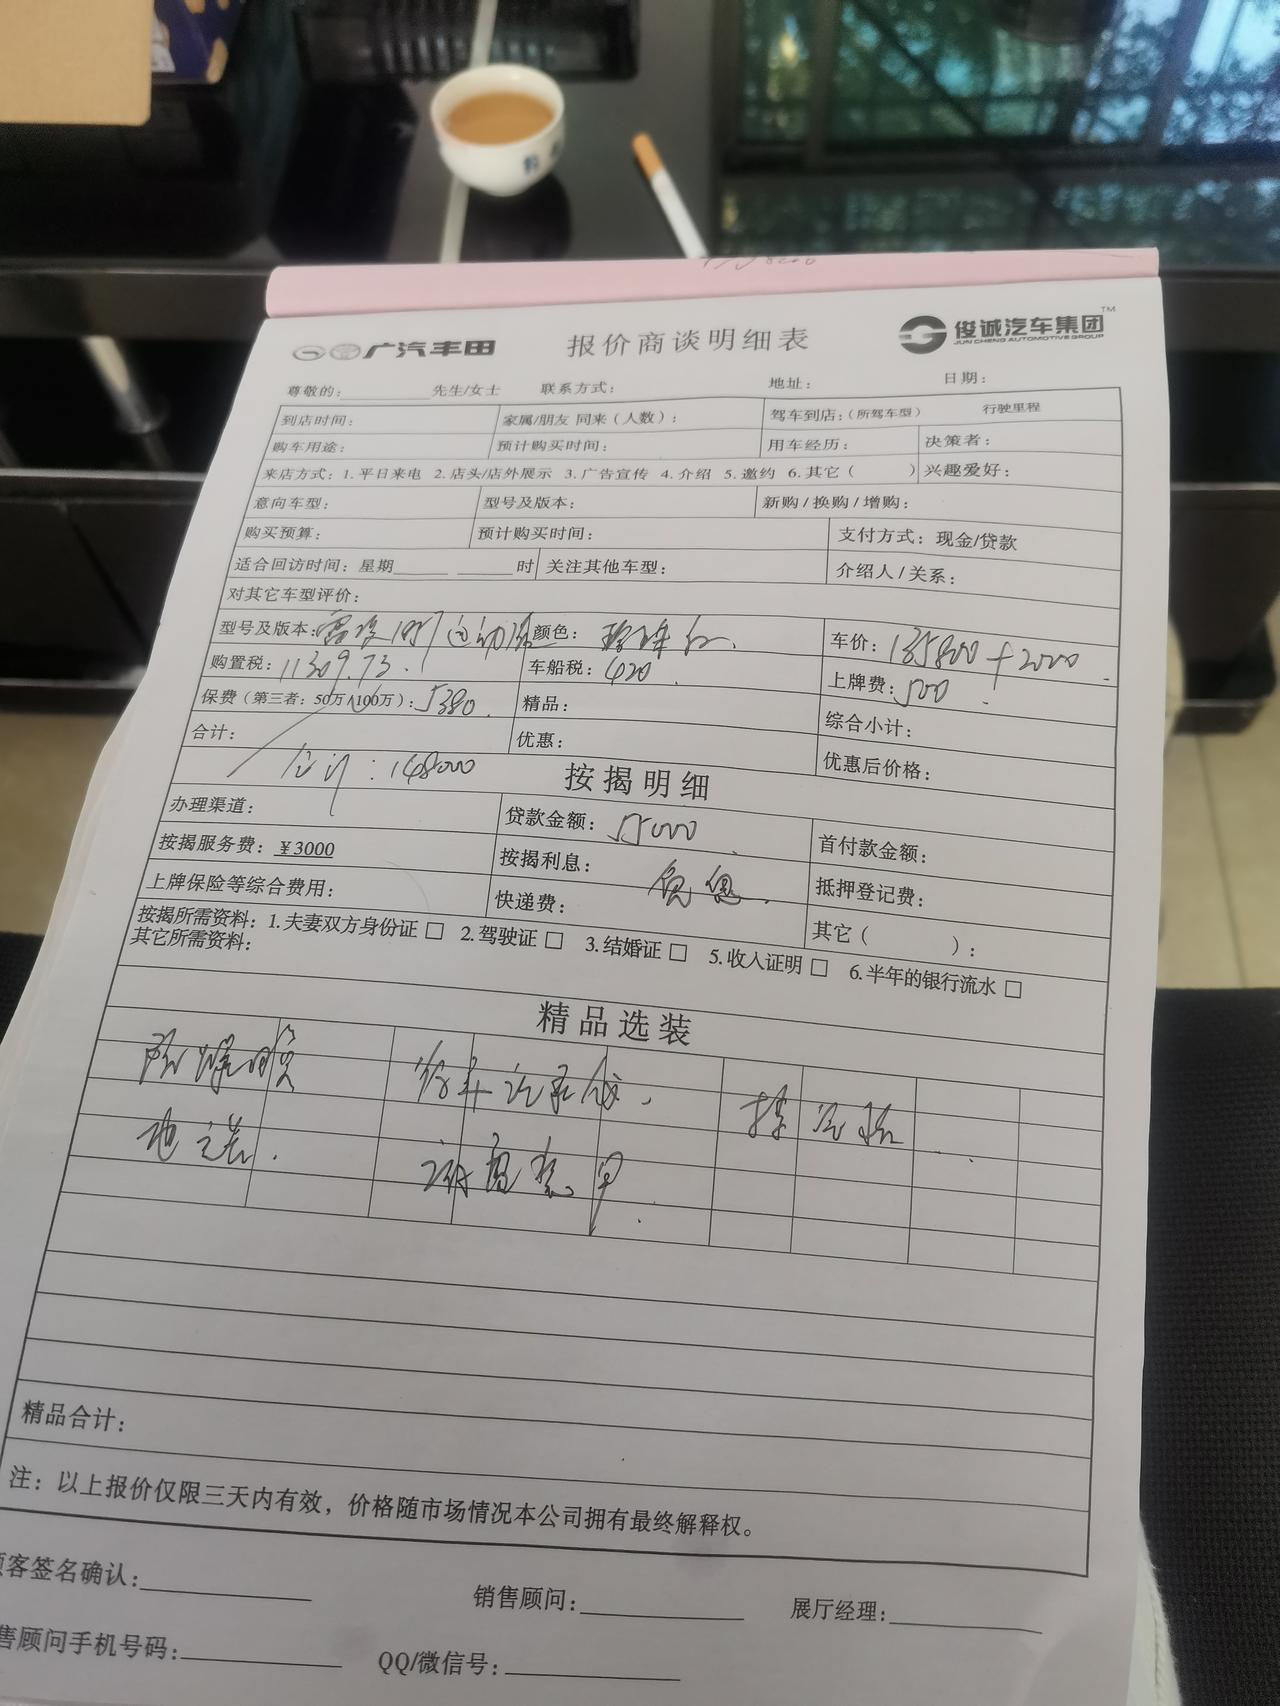 广汽丰田 报价商谈明细表 俊诚汽车集团™
JUN CHENG AUTOMOTIVE GROUP
尊敬的：________先生/女士 联系方式： 地址： 日期：
到店时间： 家属/朋友 同来（人数）： 驾车到店：（所驾车型） 行驶里程
购车用途： 预计购买时间： 用车经历： 决策者：
来店方式：1. 平日来电 2. 店头/店外展示 3. 广告宣传 4. 介绍 5. 邀约 6. 其它（ ） 兴趣爱好：
意向车型： 型号及版本： 新购/换购/增购：
购买预算： 预计购买时间： 支付方式：现金/贷款
适合回访时间：星期_____ _____时 关注其他车型： 介绍人/关系：
对其它车型评价：
型号及版本： 运动版 颜色：珍珠红 车价：135800+2000
购置税：11309.73 车船税：420 上牌费：500
保费（第三者：50万/100万）：5380 精品： 综合小计：
合计： 优惠： 优惠后价格：
总计：148000
按揭明细
办理渠道： 贷款金额：55000 首付款金额：
按揭服务费：¥3000 按揭利息：免息 抵押登记费：
上牌保险等综合费用： 快递费： 其它（ ）：
按揭所需资料：1. 夫妻双方身份证 □ 2. 驾驶证 □ 3. 结婚证 □ 5. 收入证明 □ 6. 半年的银行流水 □
其它所需资料：
精品选装
防爆膜 行车记录仪
精品合计：
注：以上报价仅限三天内有效，价格随市场情况本公司拥有最终解释权。
客签名确认：________ 销售顾问：________ 展厅经理：________
售顾问手机号码：________ QQ/微信号：________